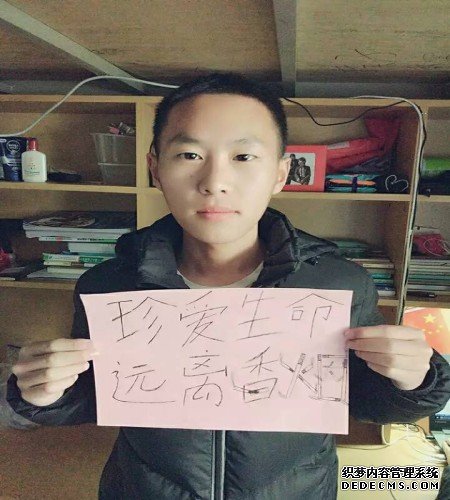 珍爱生命
远离香烟
织梦内容管理系统
DEDECMS.COM